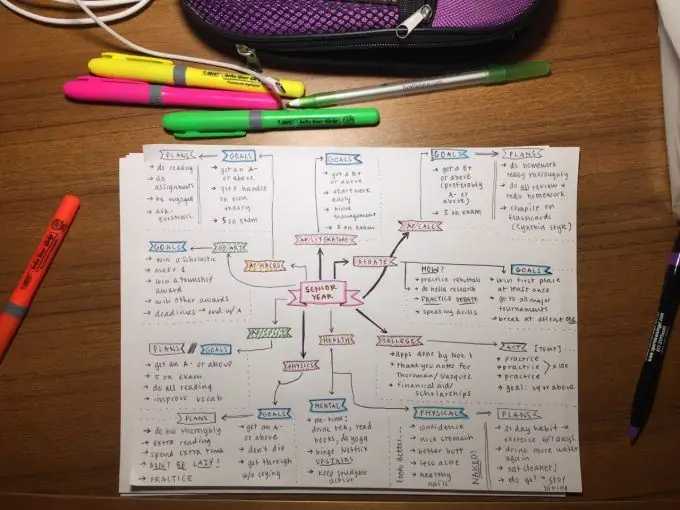 BIC
brite liner Grip
BIC
brite liner Grip
BIC brite liner Grip
PLANS
→ do reading
→ do
assignments
→ be engaged
→ ask
questions
GOALS
→ get an A-
or above
→ get a handle
on econ
theory
→ 5 on exam
GOALS
→ get a B+
or above
→ start work
early
→ time
management
→ 5 on exam
GOAL
→ get a B+
or above
(preferably
A- or
above)
→ 5 on exam
PLANS
→ do homework
really thoroughly
→ do all review +
redo homework
→ compile on
flashcards
(Cynthia style)
AP/LITERATURE
AP/CALC
GOALS
→ win a scholastic
→ make 1
→ win a township
award
→ win other awards
→ deadlines → end w/ A
AP/MACRO
DEBATE
HOW?
→ practice rebuttals
→ do hella research
→ PRACTICE DEBATE
→ speaking drills
GOALS
→ win first place
at least once
→ go to all major
tournaments
→ break at at least one
SENIOR
YEAR
PLANS // GOALS
→ get an A- or above
→ 5 on exam
→ do all reading
→ improve vocab
HEALTH
PHYSICS
COLLEGE
→ apps done by Nov 1
→ thank you notes for
Thorman/Vazquez
→ financial aid/
scholarships
ACT
→ practice
→ practice
→ practice
x 100
→ goal: 34 or above
PLANS
→ do hw thoroughly
→ extra reading
→ spend extra time
→ DON'T BE LAZY!
→ PRACTICE
GOALS
→ get an A-
or above
→ don't die
→ get through
w/o crying
MENTAL
→ me-time:
drink tea, read
books, do yoga
→ binge Netflix
UPSTAIRS
→ keep studygram
active
PHYSICAL
look better...
→ confidence
→ nice stomach
→ better butt
→ less acne
→ healthy
nails
NAKED!
PLANS
→ 21 day habit →
exercise 6/7 days
→ drink more water
again
→ eat cleaner!
→ stop
biting